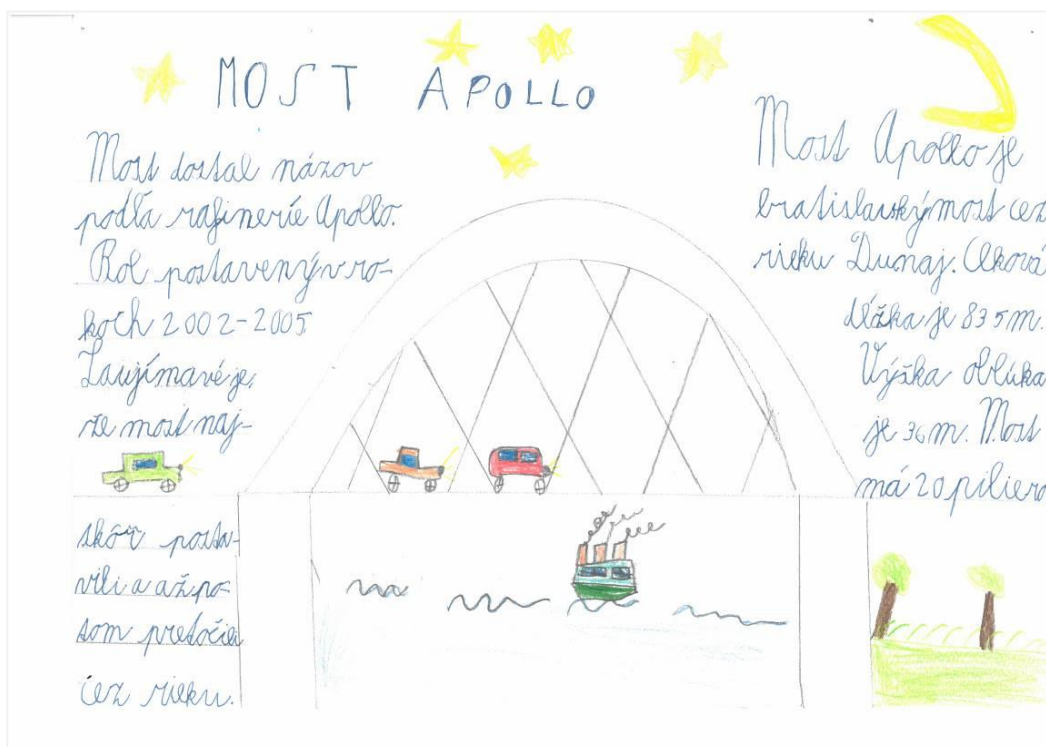 MOST APOLLO
Most dostal názov
podľa rafinerie Apollo.
Bol postavený v ro-
koch 2002-2005.
Zaujímavé je,
že most naj-
skôr posta-
vili a až po-
tom pretočili
cez rieku.
Most Apollo je
bratislavský most cez
rieku Dunaj. Celková
dĺžka je 835 m.
Výška oblúka
je 36 m. Most
má 20 pilierov